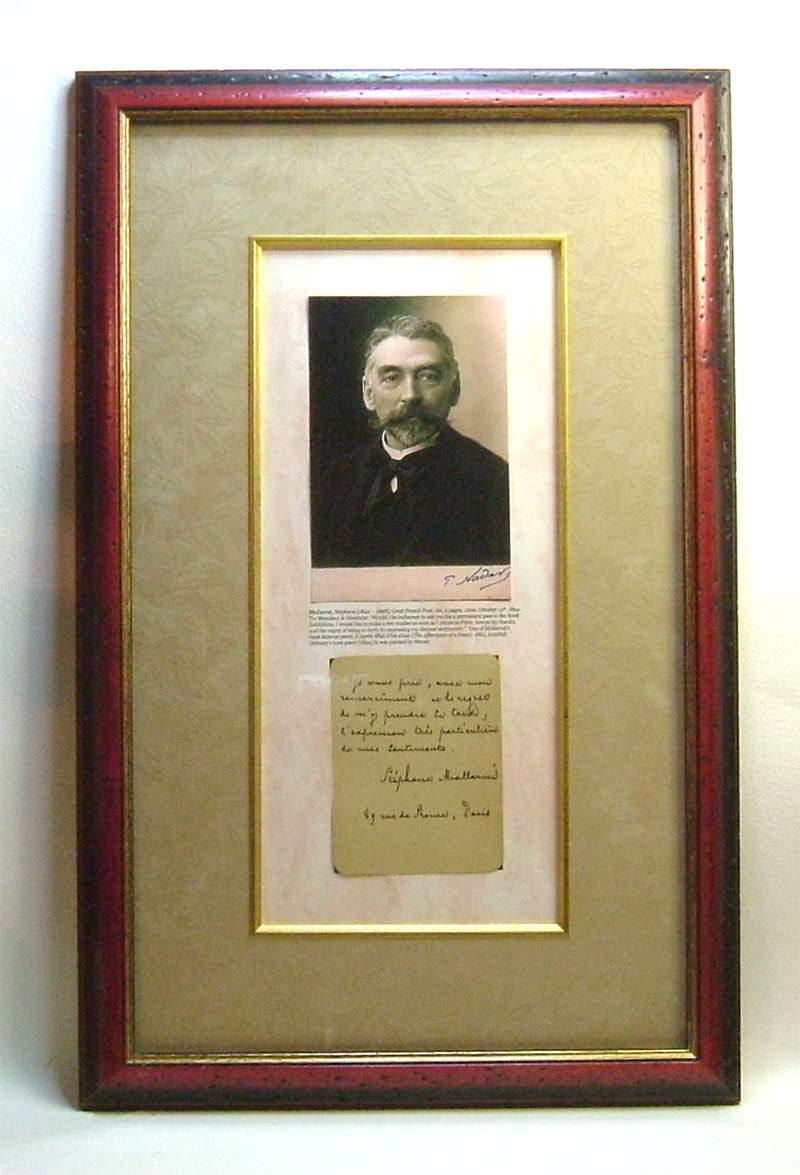 T. Nadar
Mallarmé, Stéphane (1842 - 1898), Great French Poet. Als, 2 pages, 12mo, October 14th, 1894.
To: Monsieur le Directeur: "Would I be indiscreet to ask you for a permanent pass to the Book
Exhibition, I would like to make a few studies as soon as I return to Paris. Accept my thanks,
and the regret of being so tardy in expressing my deepest sentiments." One of Mallarmé's
most famous poems, L'Après Midi D'un Faun (The Afternoon of a Faun)
Debussy's tone poem (1894) & was painted by Manet.
Je vous prie, avec mon
remercîment et le regret
de m'y prendre si tard,
l'expression très particulière
de mes sentiments.
Stéphane Mallarmé
89 rue de Rome, Paris